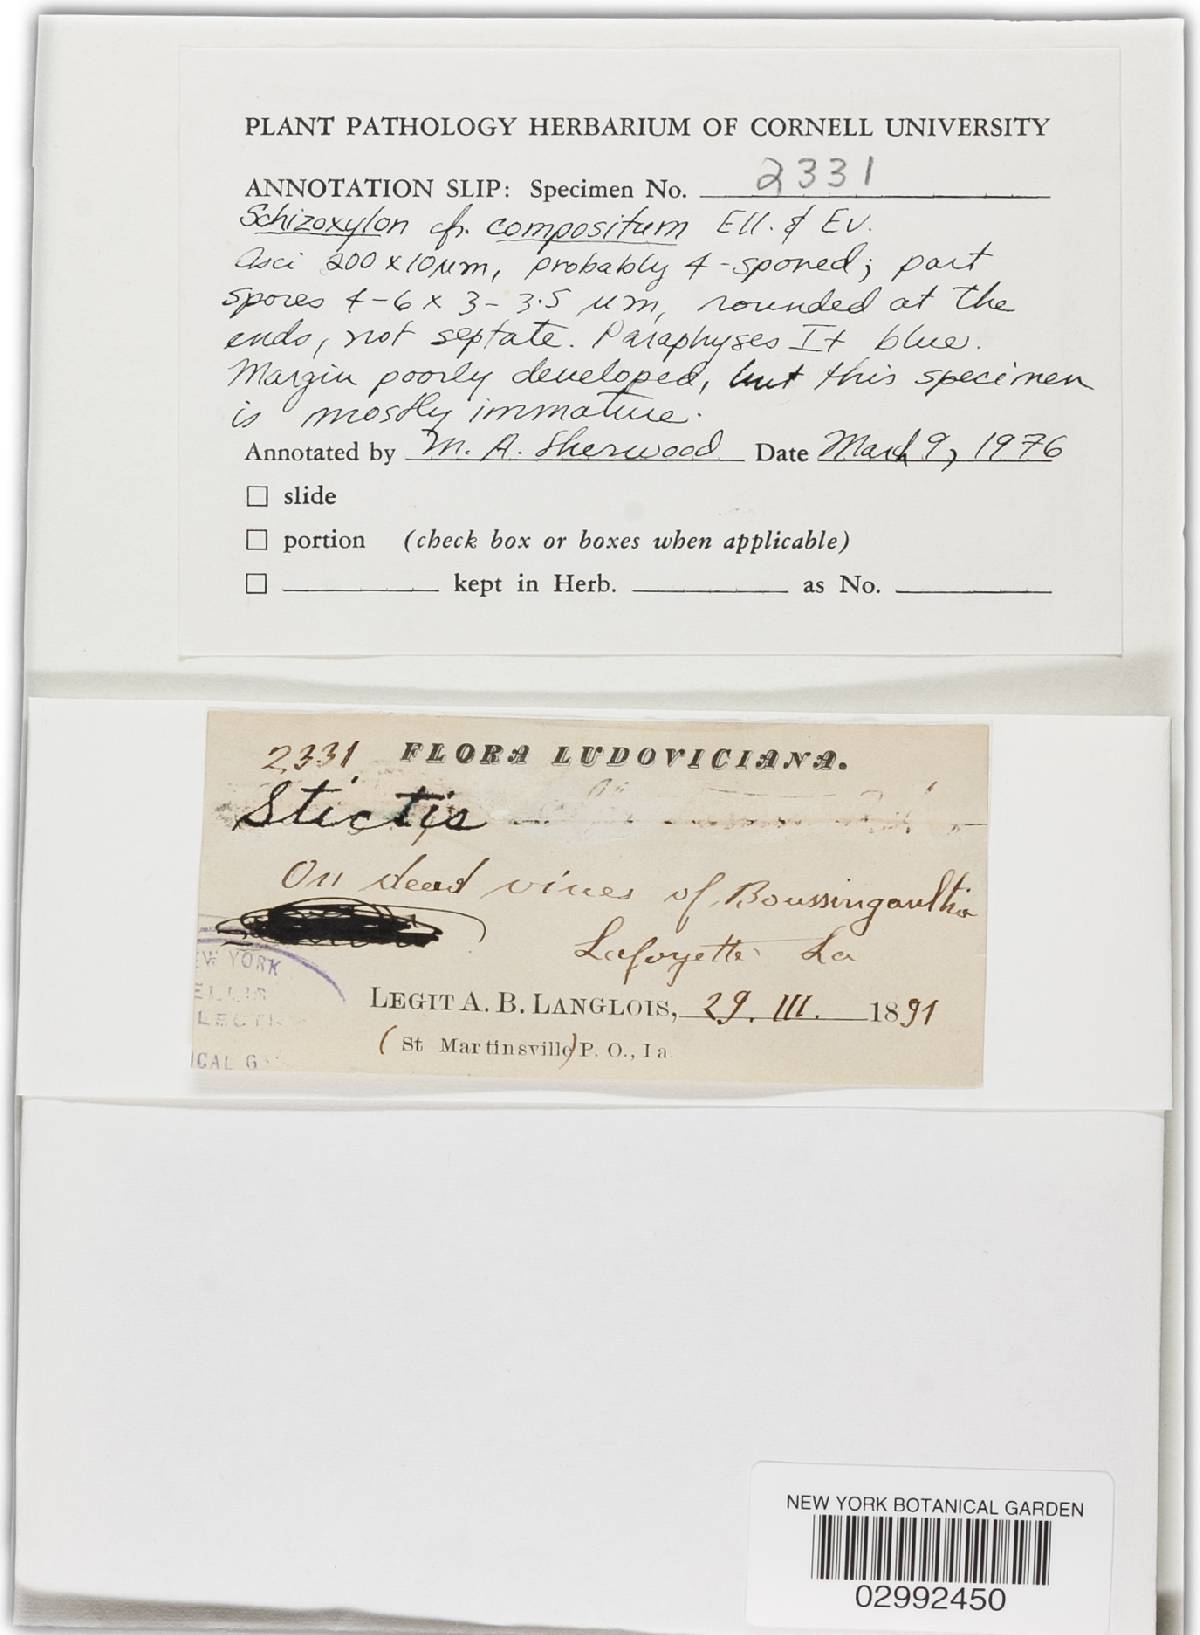 PLANT PATHOLOGY HERBARIUM OF CORNELL UNIVERSITY
ANNOTATION SLIP: Specimen No. 2331
Schizoxylon cfr. compositum Ell. & Ev.
Asci 200 x 10 µm, probably 4-spored; part
spores 4-6 x 3-3.5 µm, rounded at the
ends, not septate. Paraphyses I+ blue.
Margin poorly developed, but this specimen
is mostly immature.
Annotated by M. A. Sherwood Date March 9, 1976
slide
portion (check box or boxes when applicable)
kept in Herb. as No.
2331 FLORA LUDOVICIANA.
Stictis
On dead vines of Boussingaultia
Lafayette La
LEGIT A. B. LANGLOIS, 29. III. 1891
(St Martinsville) P. O., La
EW YORK
ELLIS
LECTI
ICAL G
NEW YORK BOTANICAL GARDEN
02992450